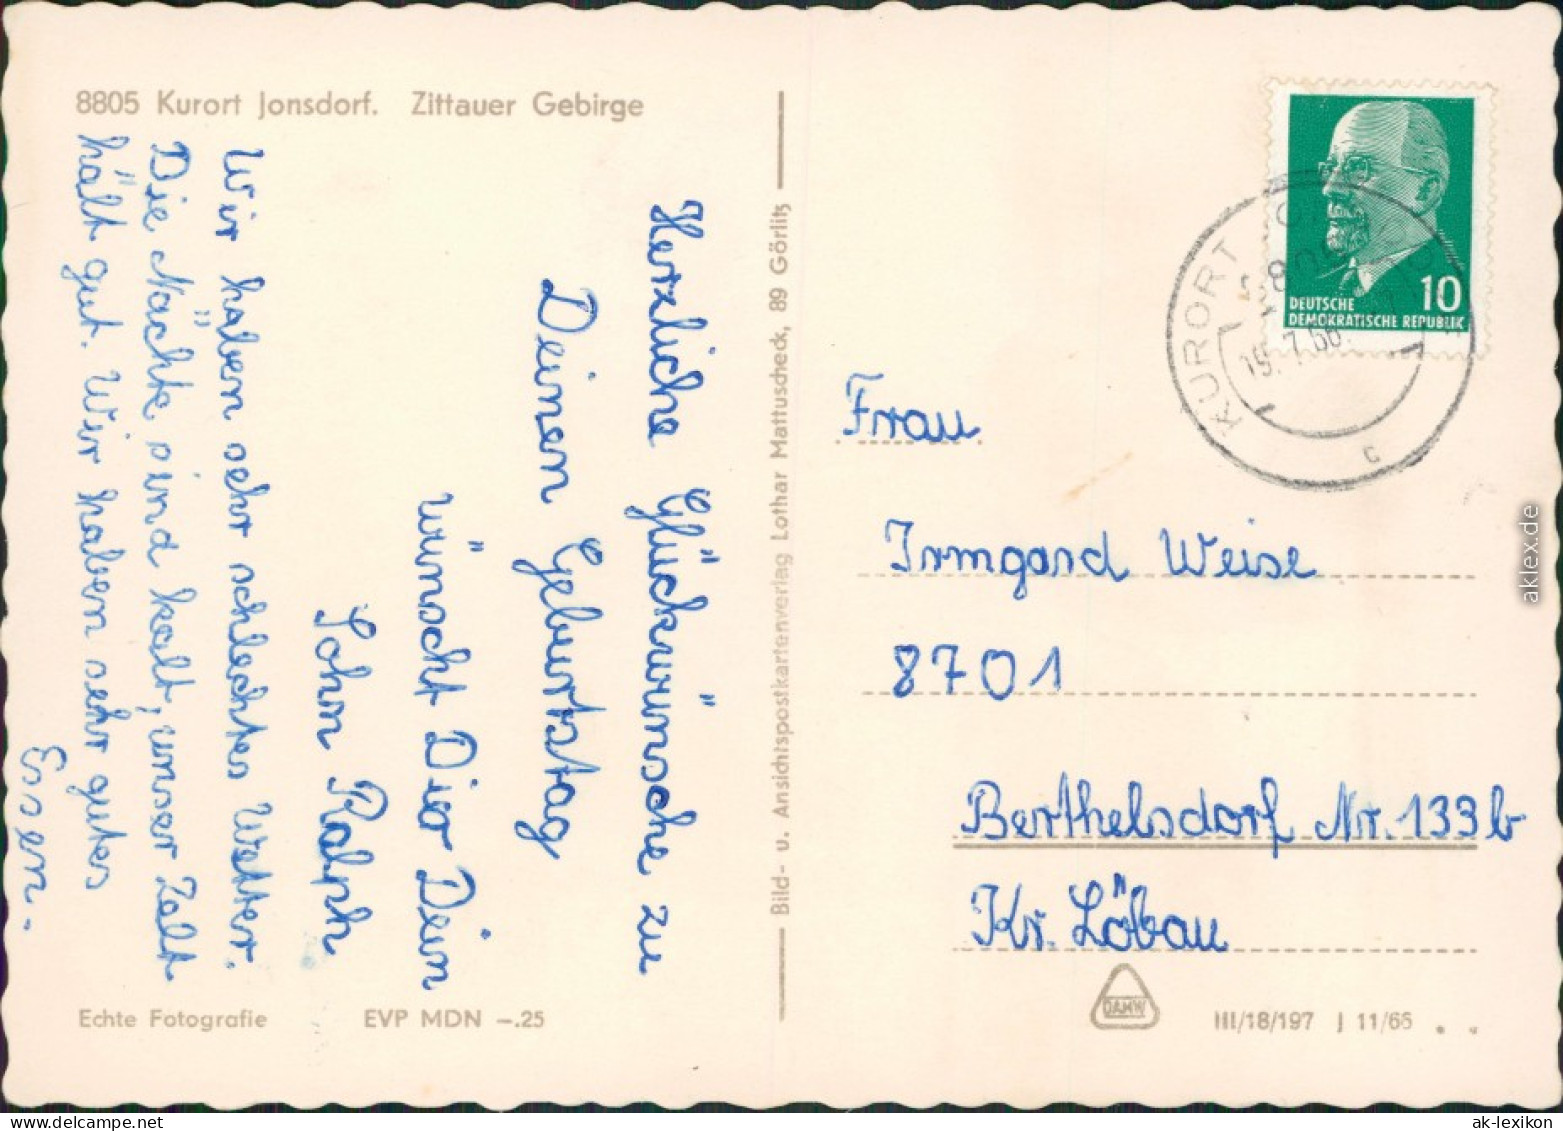 8805 Kurort Jonsdorf. Zittauer Gebirge
Herzliche Glückwünsche zu
Deinen Geburtstag
wünscht Dier Dein
Sohn Ralph
Wir häben sehr schlechtes Wetter.
Die Nächte sind kalt, unser Zelt
hält gut. Wir haben sehr gutes
Essen.
Echte Fotografie EVP MDN –.25
Bild- u. Ansichtspostkartenverlag Lothar Mattuscheck, 89 Görlitz
10
DEUTSCHE
DEMOKRATISCHE REPUBLIK
KURORT
19.7.66.
c
Frau
Irmgard Weise
8701
Berthelsdorf Nr. 133b
Kr. Löbau
DAMW
III/18/197 J 11/66
aklex.de
www.delcampe.net
ak-lexikon